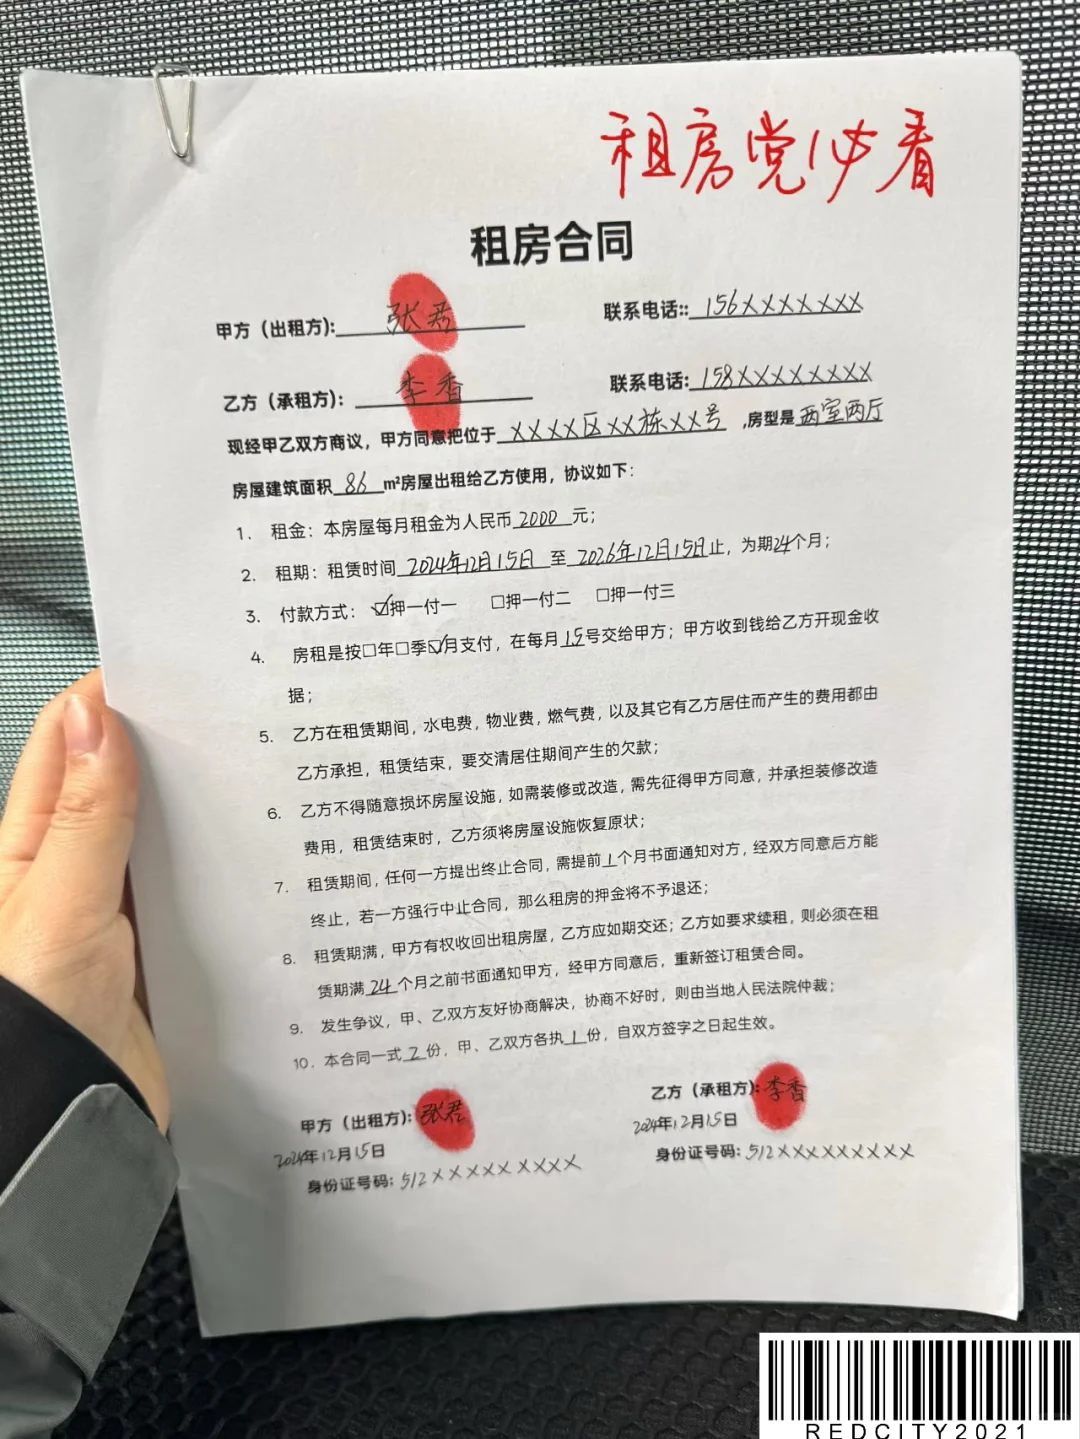 租房党必看
租房合同
甲方（出租方）：张君 联系电话：：156XXXXXXX
乙方（承租方）： 李香 联系电话：158XXXXXXXX
现经甲乙双方商议，甲方同意把位于XXXX区XX栋XX号，房型是两室两厅
房屋建筑面积86m²房屋出租给乙方使用，协议如下：
1. 租金：本房屋每月租金为人民币2000元；
2. 租期：租赁时间2024年12月15日至2026年12月15日止，为期24个月；
3. 付款方式：☑押一付一 □押一付二 □押一付三
4. 房租是按□年□季☑月支付，在每月15号交给甲方；甲方收到钱给乙方开现金收
据；
5. 乙方在租赁期间，水电费，物业费，燃气费，以及其它有乙方居住而产生的费用都由
乙方承担，租赁结束，要交清居住期间产生的欠款；
6. 乙方不得随意损坏房屋设施，如需装修或改造，需先征得甲方同意，并承担装修改造
费用，租赁结束时，乙方须将房屋设施恢复原状；
7. 租赁期间，任何一方提出终止合同，需提前1个月书面通知对方，经双方同意后方能
终止，若一方强行中止合同，那么租房的押金将不予退还；
8. 租赁期满，甲方有权收回出租房屋，乙方应如期交还；乙方如要求续租，则必须在租
赁期满24个月之前书面通知甲方，经甲方同意后，重新签订租赁合同。
9. 发生争议，甲、乙双方友好协商解决，协商不好时，则由当地人民法院仲裁；
10. 本合同一式2份，甲、乙双方各执1份，自双方签字之日起生效。
甲方（出租方）：张君 乙方（承租方）：李香
2024年12月15日 2024年12月15日
身份证号码：512XXXXXXXXX 身份证号码：512XXXXXXXXXX
REDCITY2021